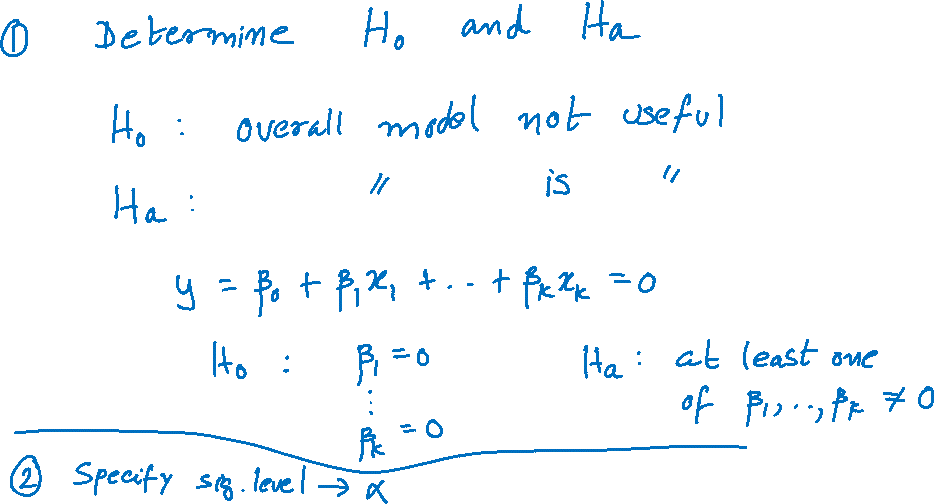 ① Determine H₀ and Ha
H₀ : overall model not useful
Ha : " is "
y = β₀ + β₁x₁ + . . + βₖxₖ = 0
H₀ : β₁ = 0 Ha : at least one
⋮ of β₁, . ., βₖ ≠ 0
βₖ = 0
② Specify sig. level → α